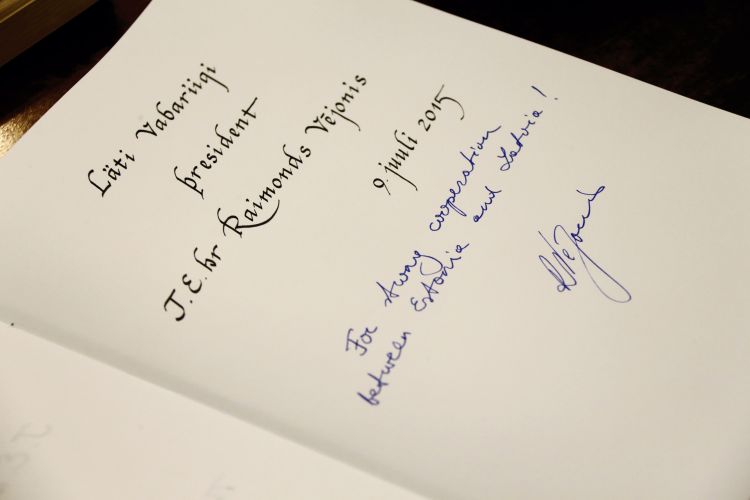 Läti Vabariigi
president
T.E. hr Raimonds Vējonis
9. juuli 2015
For strong cooperation
between Estonia and Latvia!
RVējonis